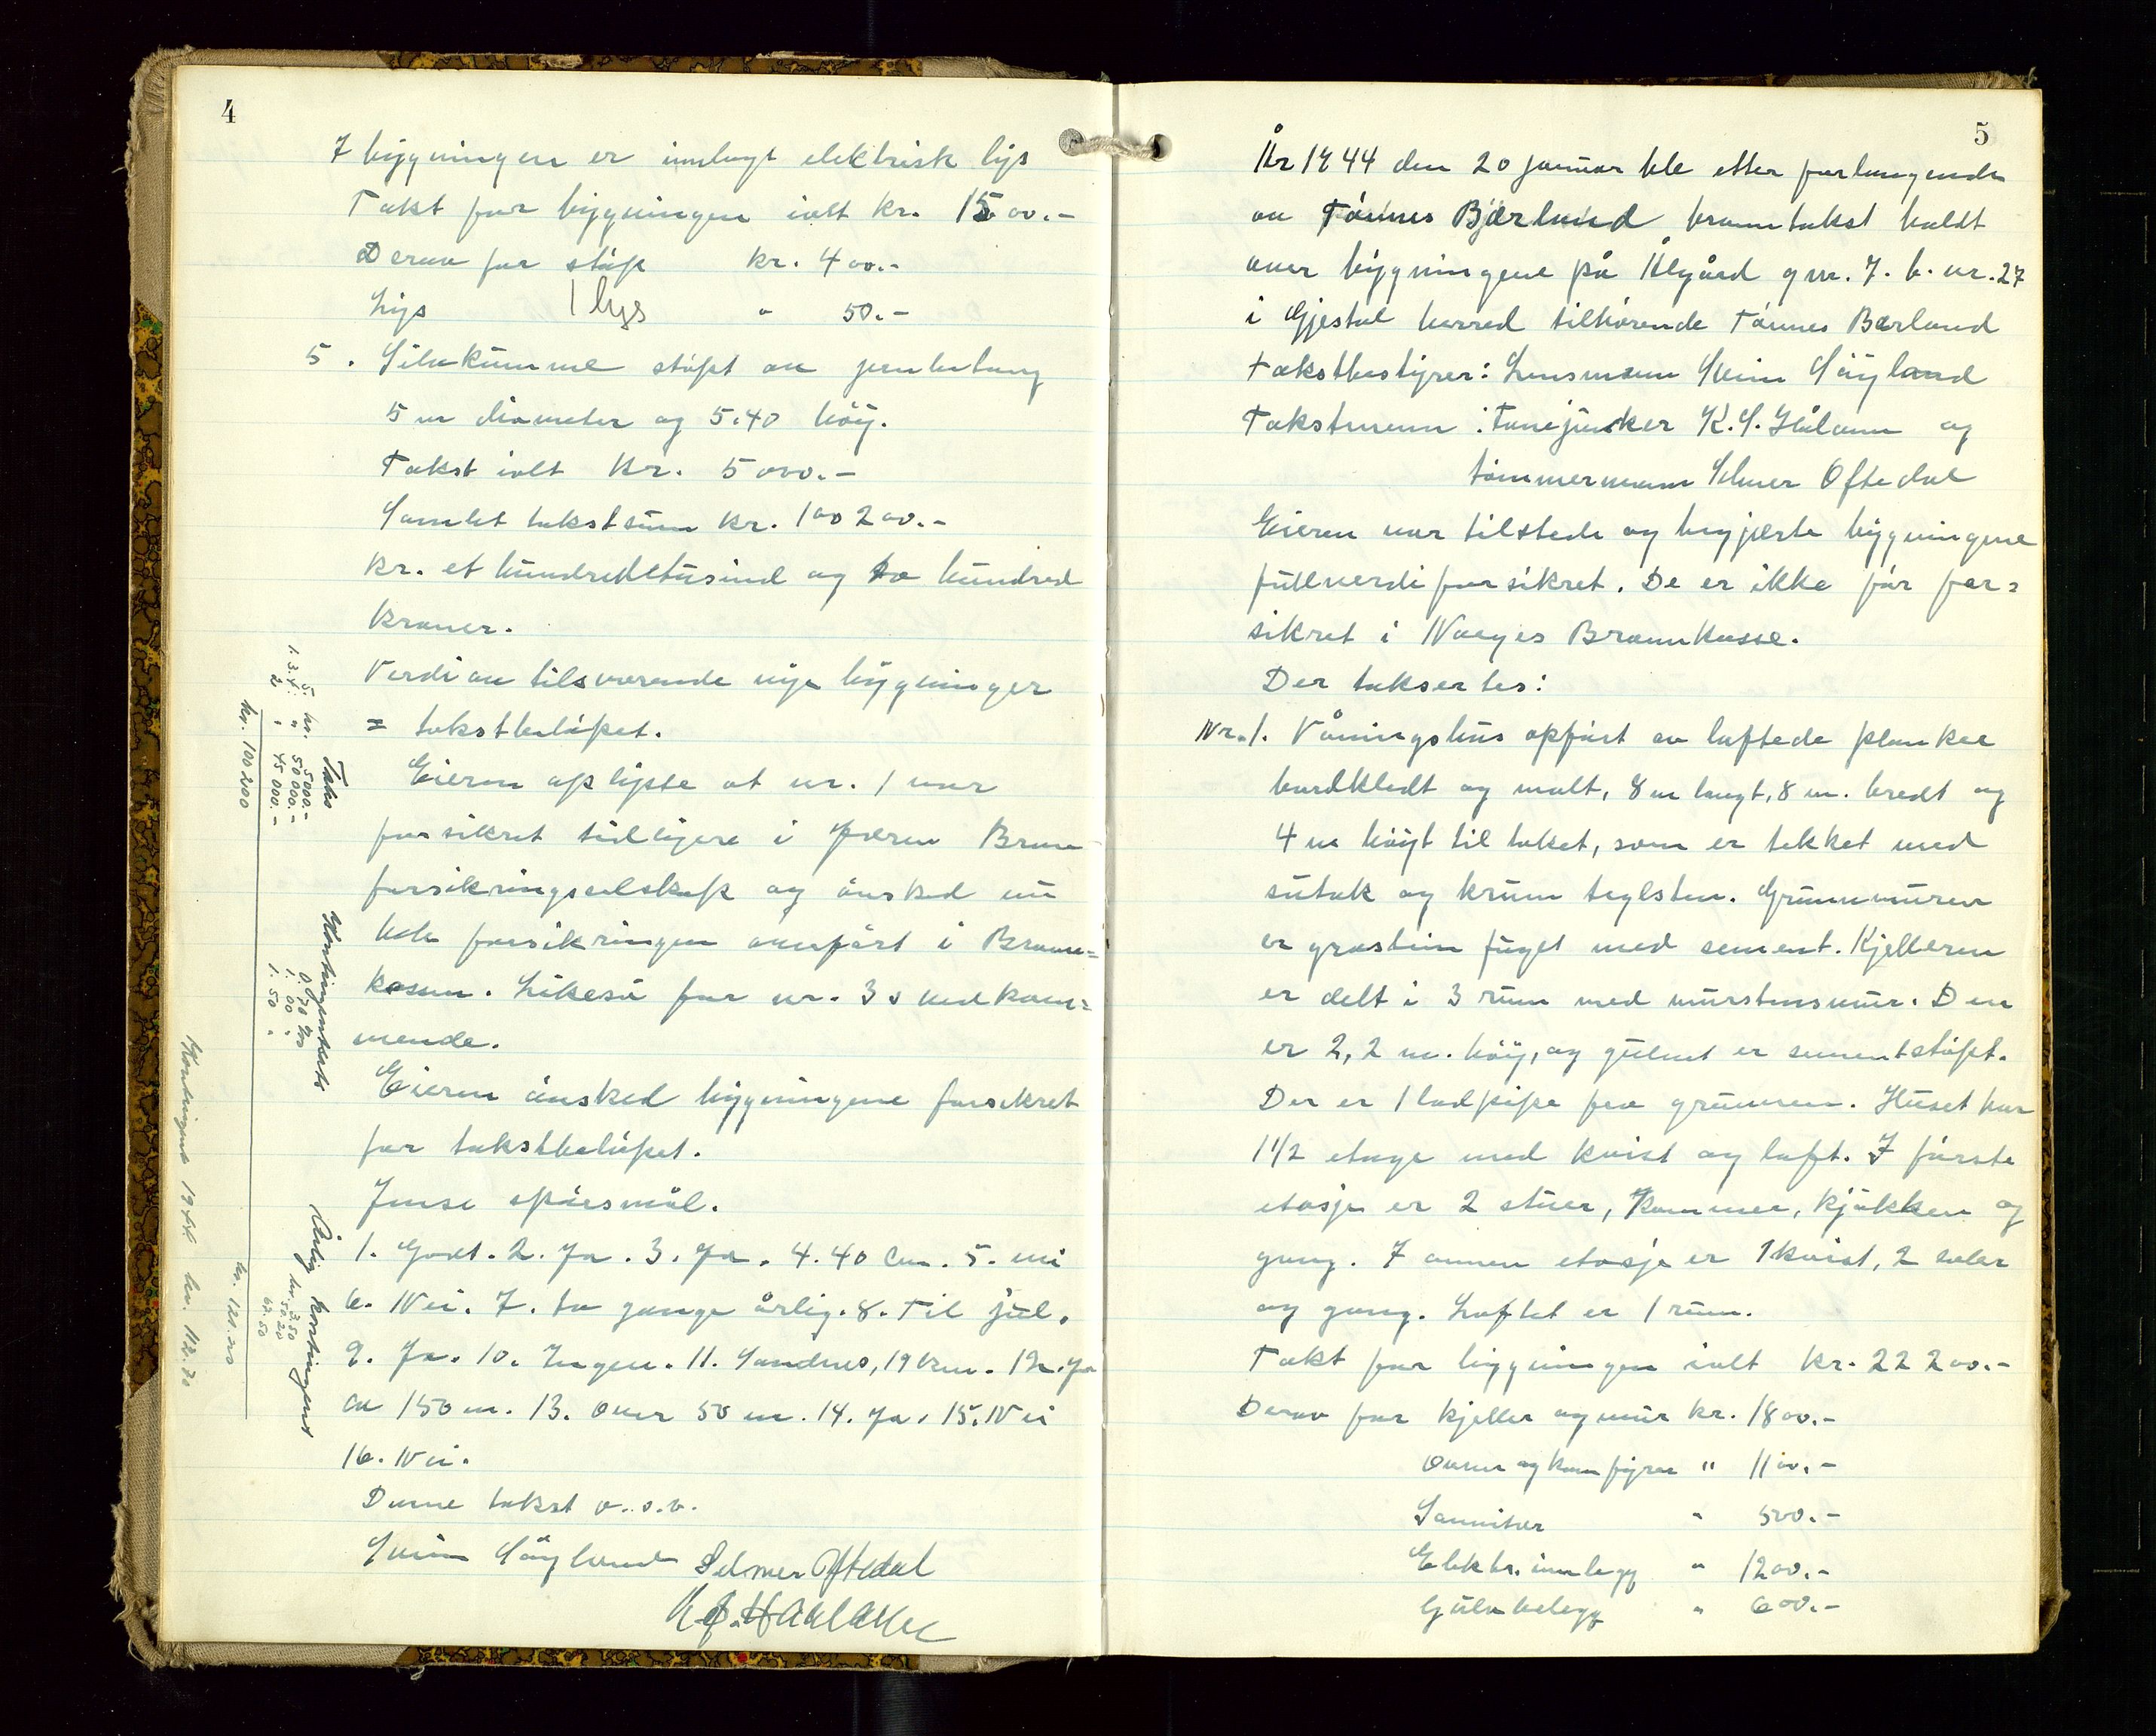 4
I bygningen er innlagt elektrisk lys
Takt for bygningen ialt kr. 1500.-
Derav for støp kr. 400.-
Lys 1 lys " 50.-
5. Silokumme støpt av jernbetong
5 m diameter og 5.40 høy.
Takst ialt kr. 5000.-
Samlet takstsum kr. 100200.-
kr. et hundredetusind og to hundred
kroner.
Verdi av tilsvarende nye bygninger
= takstbeløpet.
Eieren oplyste at nr. 1 var
forsikret tidligere i Jæren Brann
forsikringsselskap og ønsked nu
hele forsikringen overført i Brann=
kassen. Likeså for nr. 3's vedkom=
mende.
Eieren ønsked bygningene forsikret
for takstbeløpet.
Innse spørsmål.
1. Godt. 2. Ja. 3. Ja. 4. 40 cm. 5. nei
6. Nei. 7. to gange årlig. 8. Til jul.
9. Ja. 10. Ingen. 11. Sandnes, 19 km. 12. Ja
ca 150 m. 13. Over 50 m. 14. Ja. 15. Nei
16. Nei.
Denne takst o.s.v.
Svein Søyland Selmer Oftedal
K. S. Haalann
Taks Kontingentsats Årlig kontingent
5. kr. 5000.- 0.70 3.50
1.3.4. " 50 000.- 1.00 " 50.20
2 " 45 000.- 1.50 " 67.50
kr. 100 200 kr. 121.20
Kontingent 1944 kr. 112.70
5
År 1944 den 20 januar ble etter forlangende
av Tønnes Bjærland branntakst holdt
over bygningene på Ålgård gnr. 7. b. nr. 27
i Gjestal herred tilhørende Tønnes Bærland
Takstbestyrer: Lensmann Svein Søyland
Takstmenn: K. S. Hålann og
tømmermann Selmer Oftedal
Eieren var tilstede og begjærte bygningene
fullverdiforsikret. De er ikke før for=
sikret i Norges Brannkasse.
Der takseres:
Nr. 1. Våningshus opført av laftede planker
bordkledt og malt, 8 m langt, 8 m. bredt og
4 m høyt til taket, som er tekket med
sutak og krum teglsten. Grunnmuren
er gråstein fuget med sement. Kjelleren
er delt i 3 rum med murstensmur. Den
er 2,2 m. høy, og gulvet er sementstøpt.
Der er 1 lodpipe fra grunnen. Huset har
1 1/2 etage med kvist og loft. I første
etasje er 2 stuer, kammer, kjøkken og
gang. I annen etasje er 1 kvist, 2 saler
og gang. Loftet er 1 rum.
Takt for bygningen ialt kr. 22200.-
Derav for kjeller og mur kr. 1800.-
Ovner og komfyrer " 1100.-
Sanitær " 500.-
Elektr. innlegg " 1200.-
Gulvbelegg " 600.-